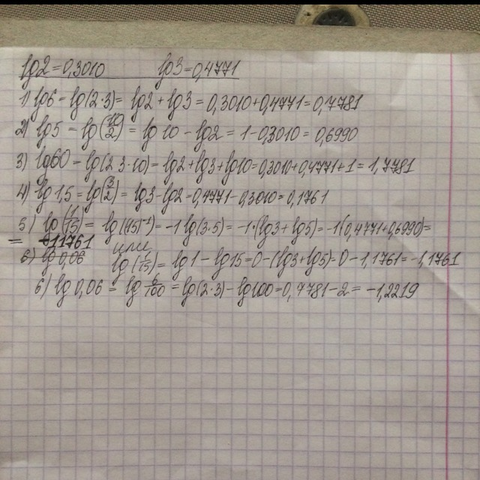 lg2=0,3010 lg3=0,4771
1) lg6 = lg(2·3) = lg2 + lg3 = 0,3010+0,4771=0,7781
2) lg5 = lg(10/2) = lg 10 - lg2 = 1-0,3010=0,6990
3) lg60 = lg(2·3·10)=lg2+lg3+lg10=0,3010+0,4771+1=1,7781
4) lg 1,5 = lg(3/2) = lg3-lg2=0,4771-0,3010=0,1761
5) lg(1/15) = lg(15⁻¹) = -1 lg(3·5) = -1·(lg3+lg5)=-1(0,4771+0,6990)=
= -1,1761 или
6) lg 0,06 lg(1/15) = lg1 - lg15=0-(lg3+lg5)=0-1,1761=-1,1761
6) lg 0,06 = lg 6/100 = lg(2·3)-lg100=0,7781-2=-1,2219